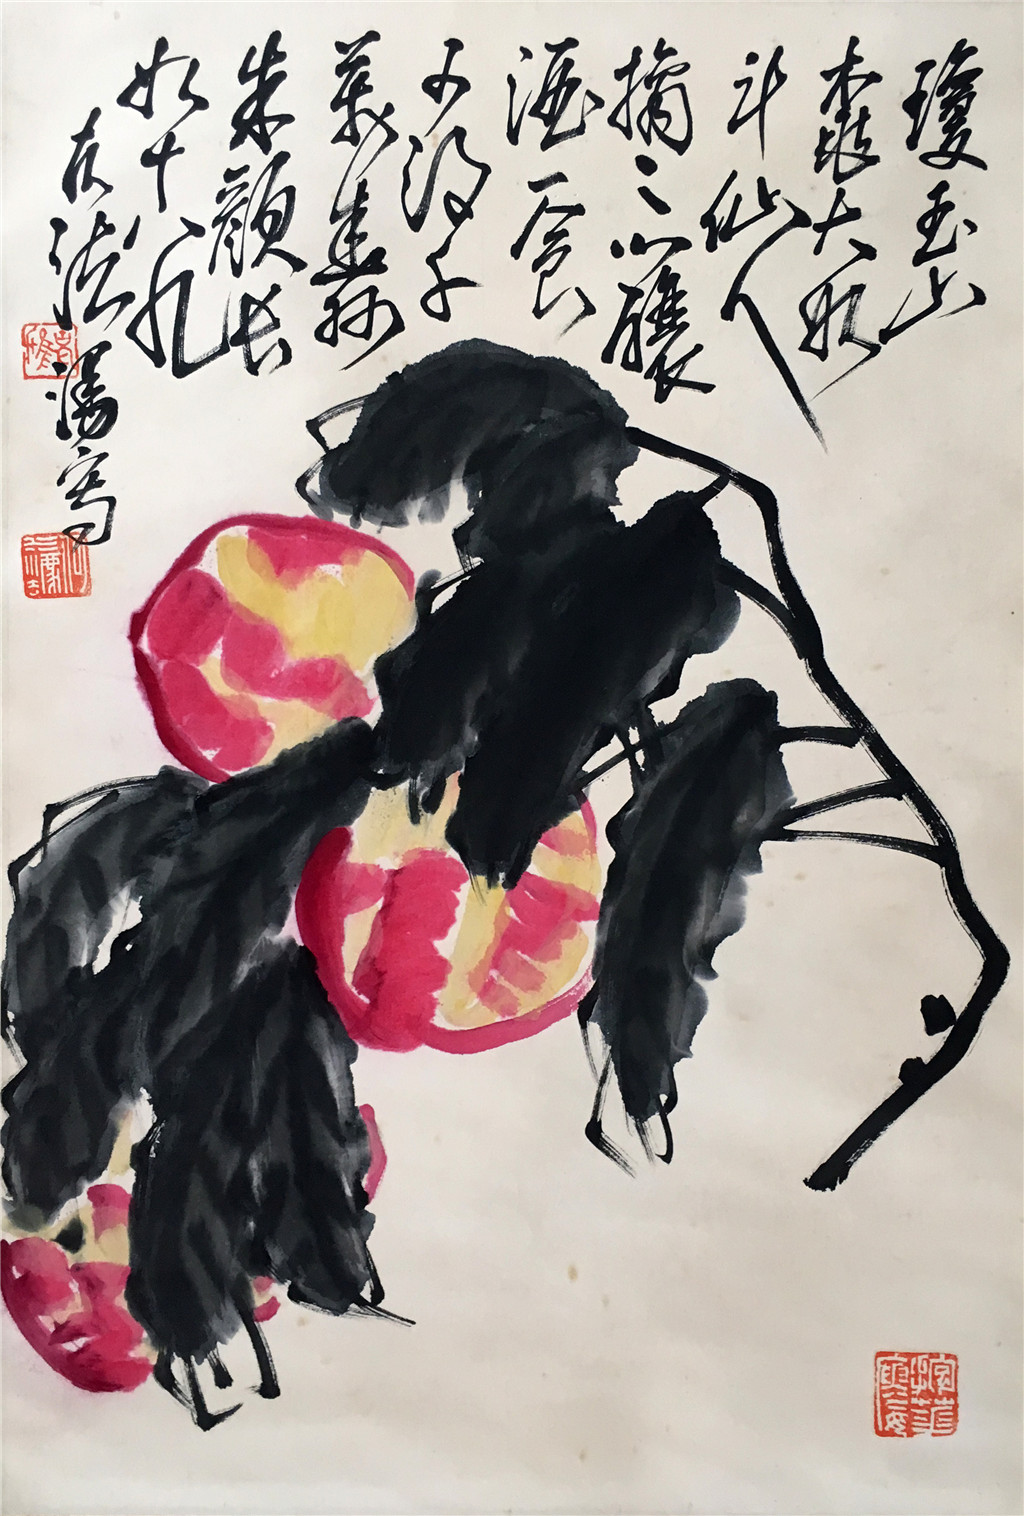 瓊玉山
桃大如
斗仙人
摘之以釀
酒一食
可得千
萬壽
朱顏長
如十八九
漫寫